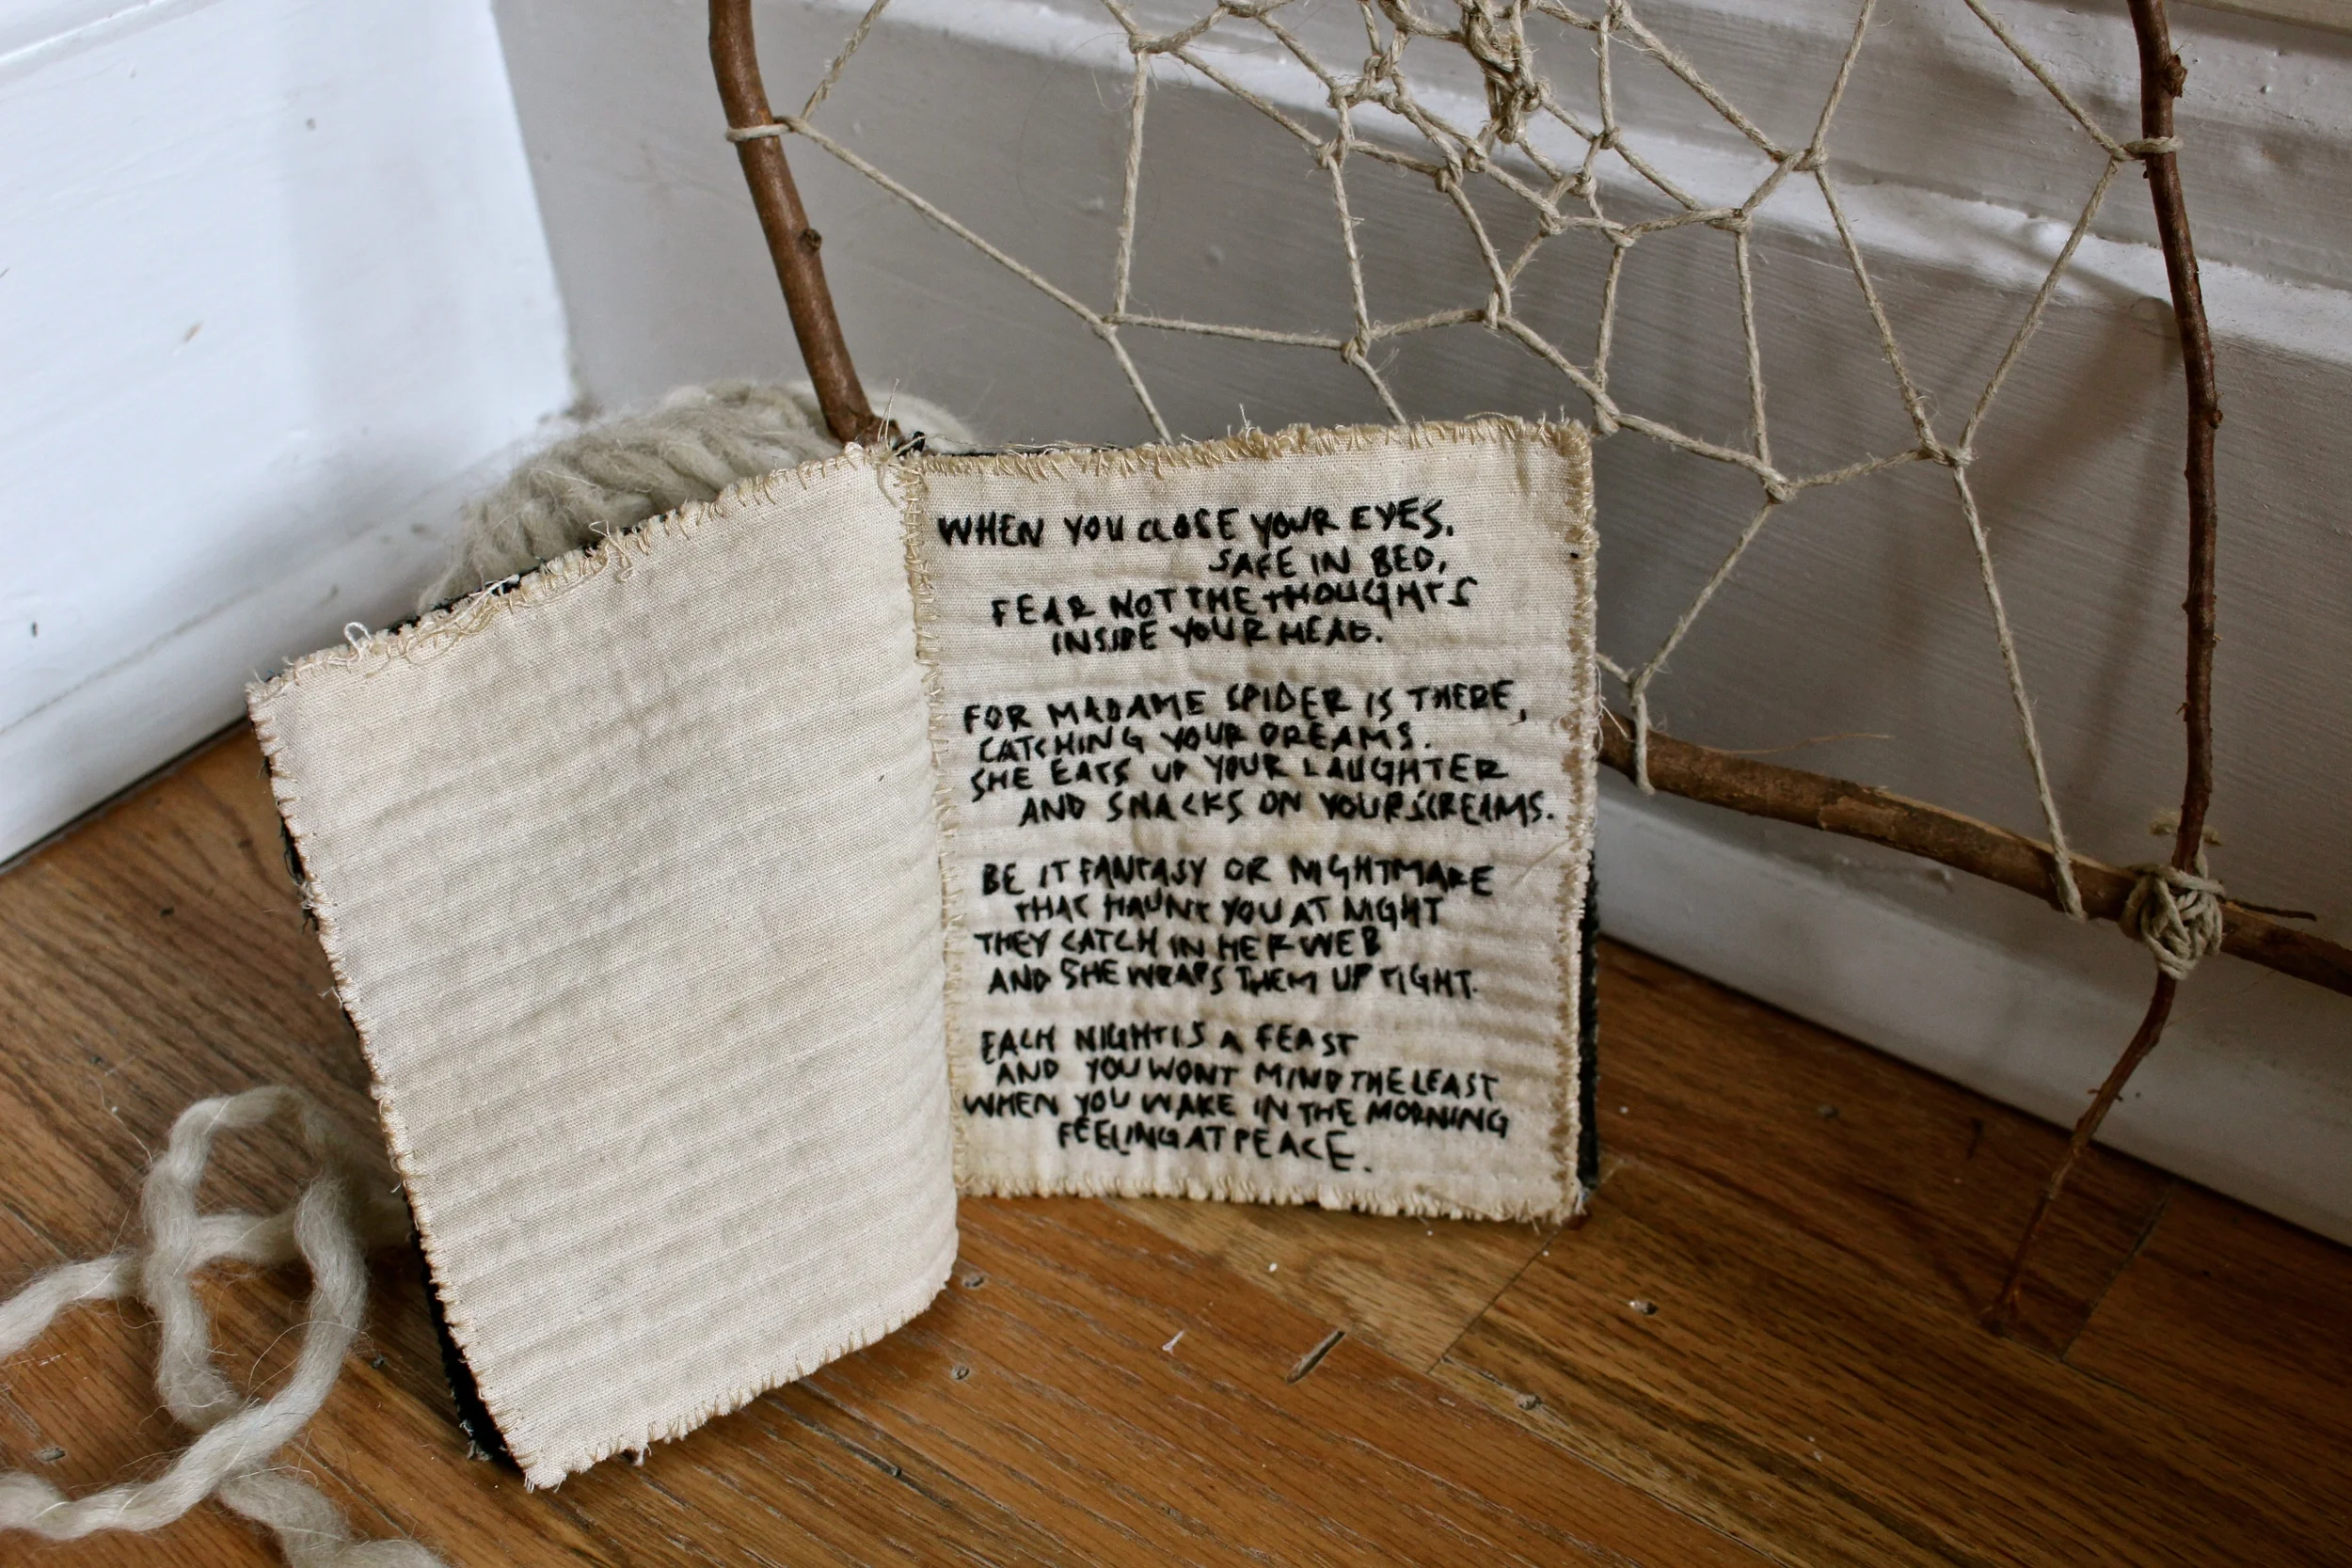 WHEN YOU CLOSE YOUR EYES,
SAFE IN BED,
FEAR NOT THE THOUGHTS
INSIDE YOUR HEAD.
FOR MADAME SPIDER IS THERE,
CATCHING YOUR DREAMS.
SHE EATS UP YOUR LAUGHTER
AND SNACKS ON YOUR SCREAMS.
BE IT FANTASY OR NIGHTMARE
THAT HAUNT YOU AT NIGHT
THEY CATCH IN HER WEB
AND SHE WRAPS THEM UP TIGHT.
EACH NIGHT IS A FEAST
AND YOU WONT MIND THE LEAST
WHEN YOU WAKE IN THE MORNING
FEELING AT PEACE.